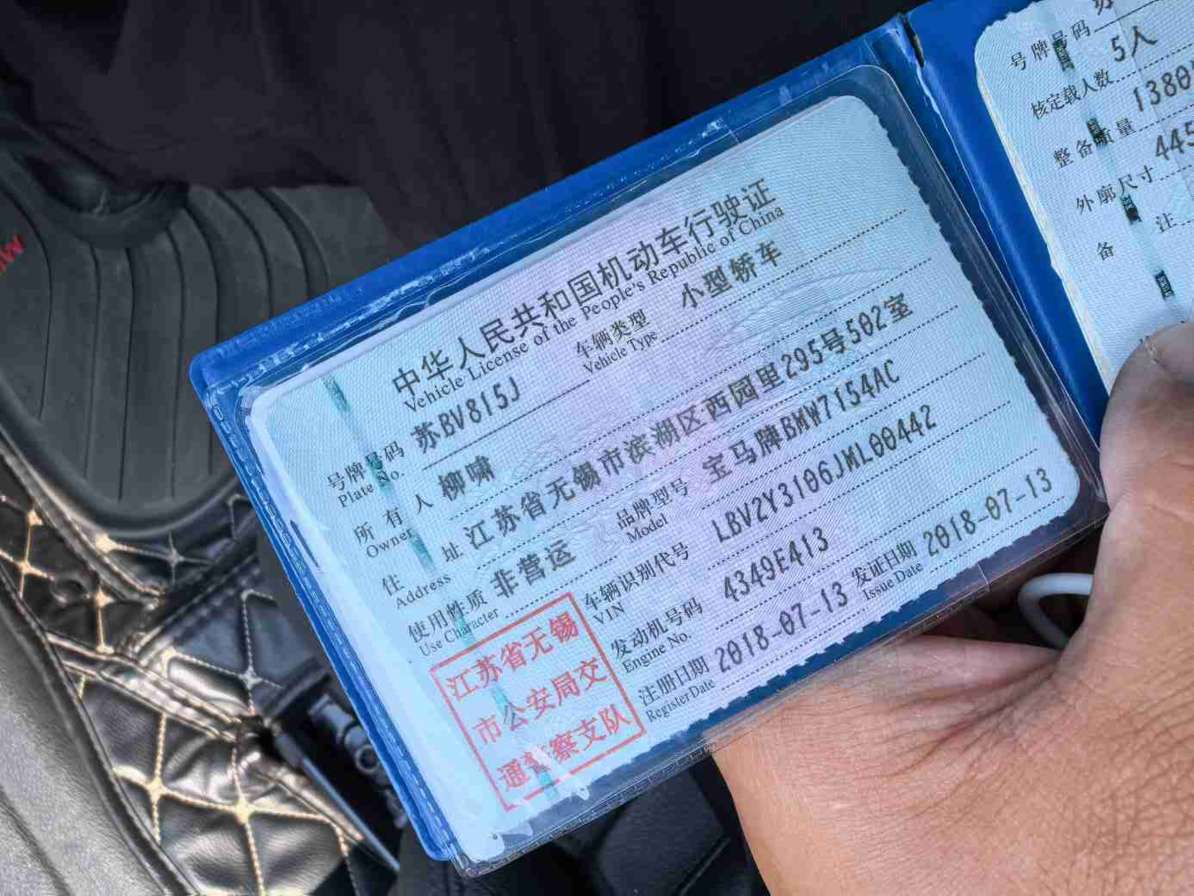 中华人民共和国机动车行驶证
Vehicle License of the People's Republic of China
号牌号码 苏BV815J 车辆类型 小型轿车
Plate No. Vehicle Type
所有人 柳啸
Owner
住址 江苏省无锡市滨湖区西园里295号502室
Address
使用性质 非营运 品牌型号 宝马牌BMW7154AC
Use Character Model
车辆识别代号 LBV2Y3106JML00442
VIN
发动机号码 4349E413
Engine No.
注册日期 2018-07-13 发证日期 2018-07-13
Register Date Issue Date
江苏省无锡
市公安局交
通警察支队
号牌号码
核定载人数 5人
整备质量 1380
外廓尺寸 445
备注